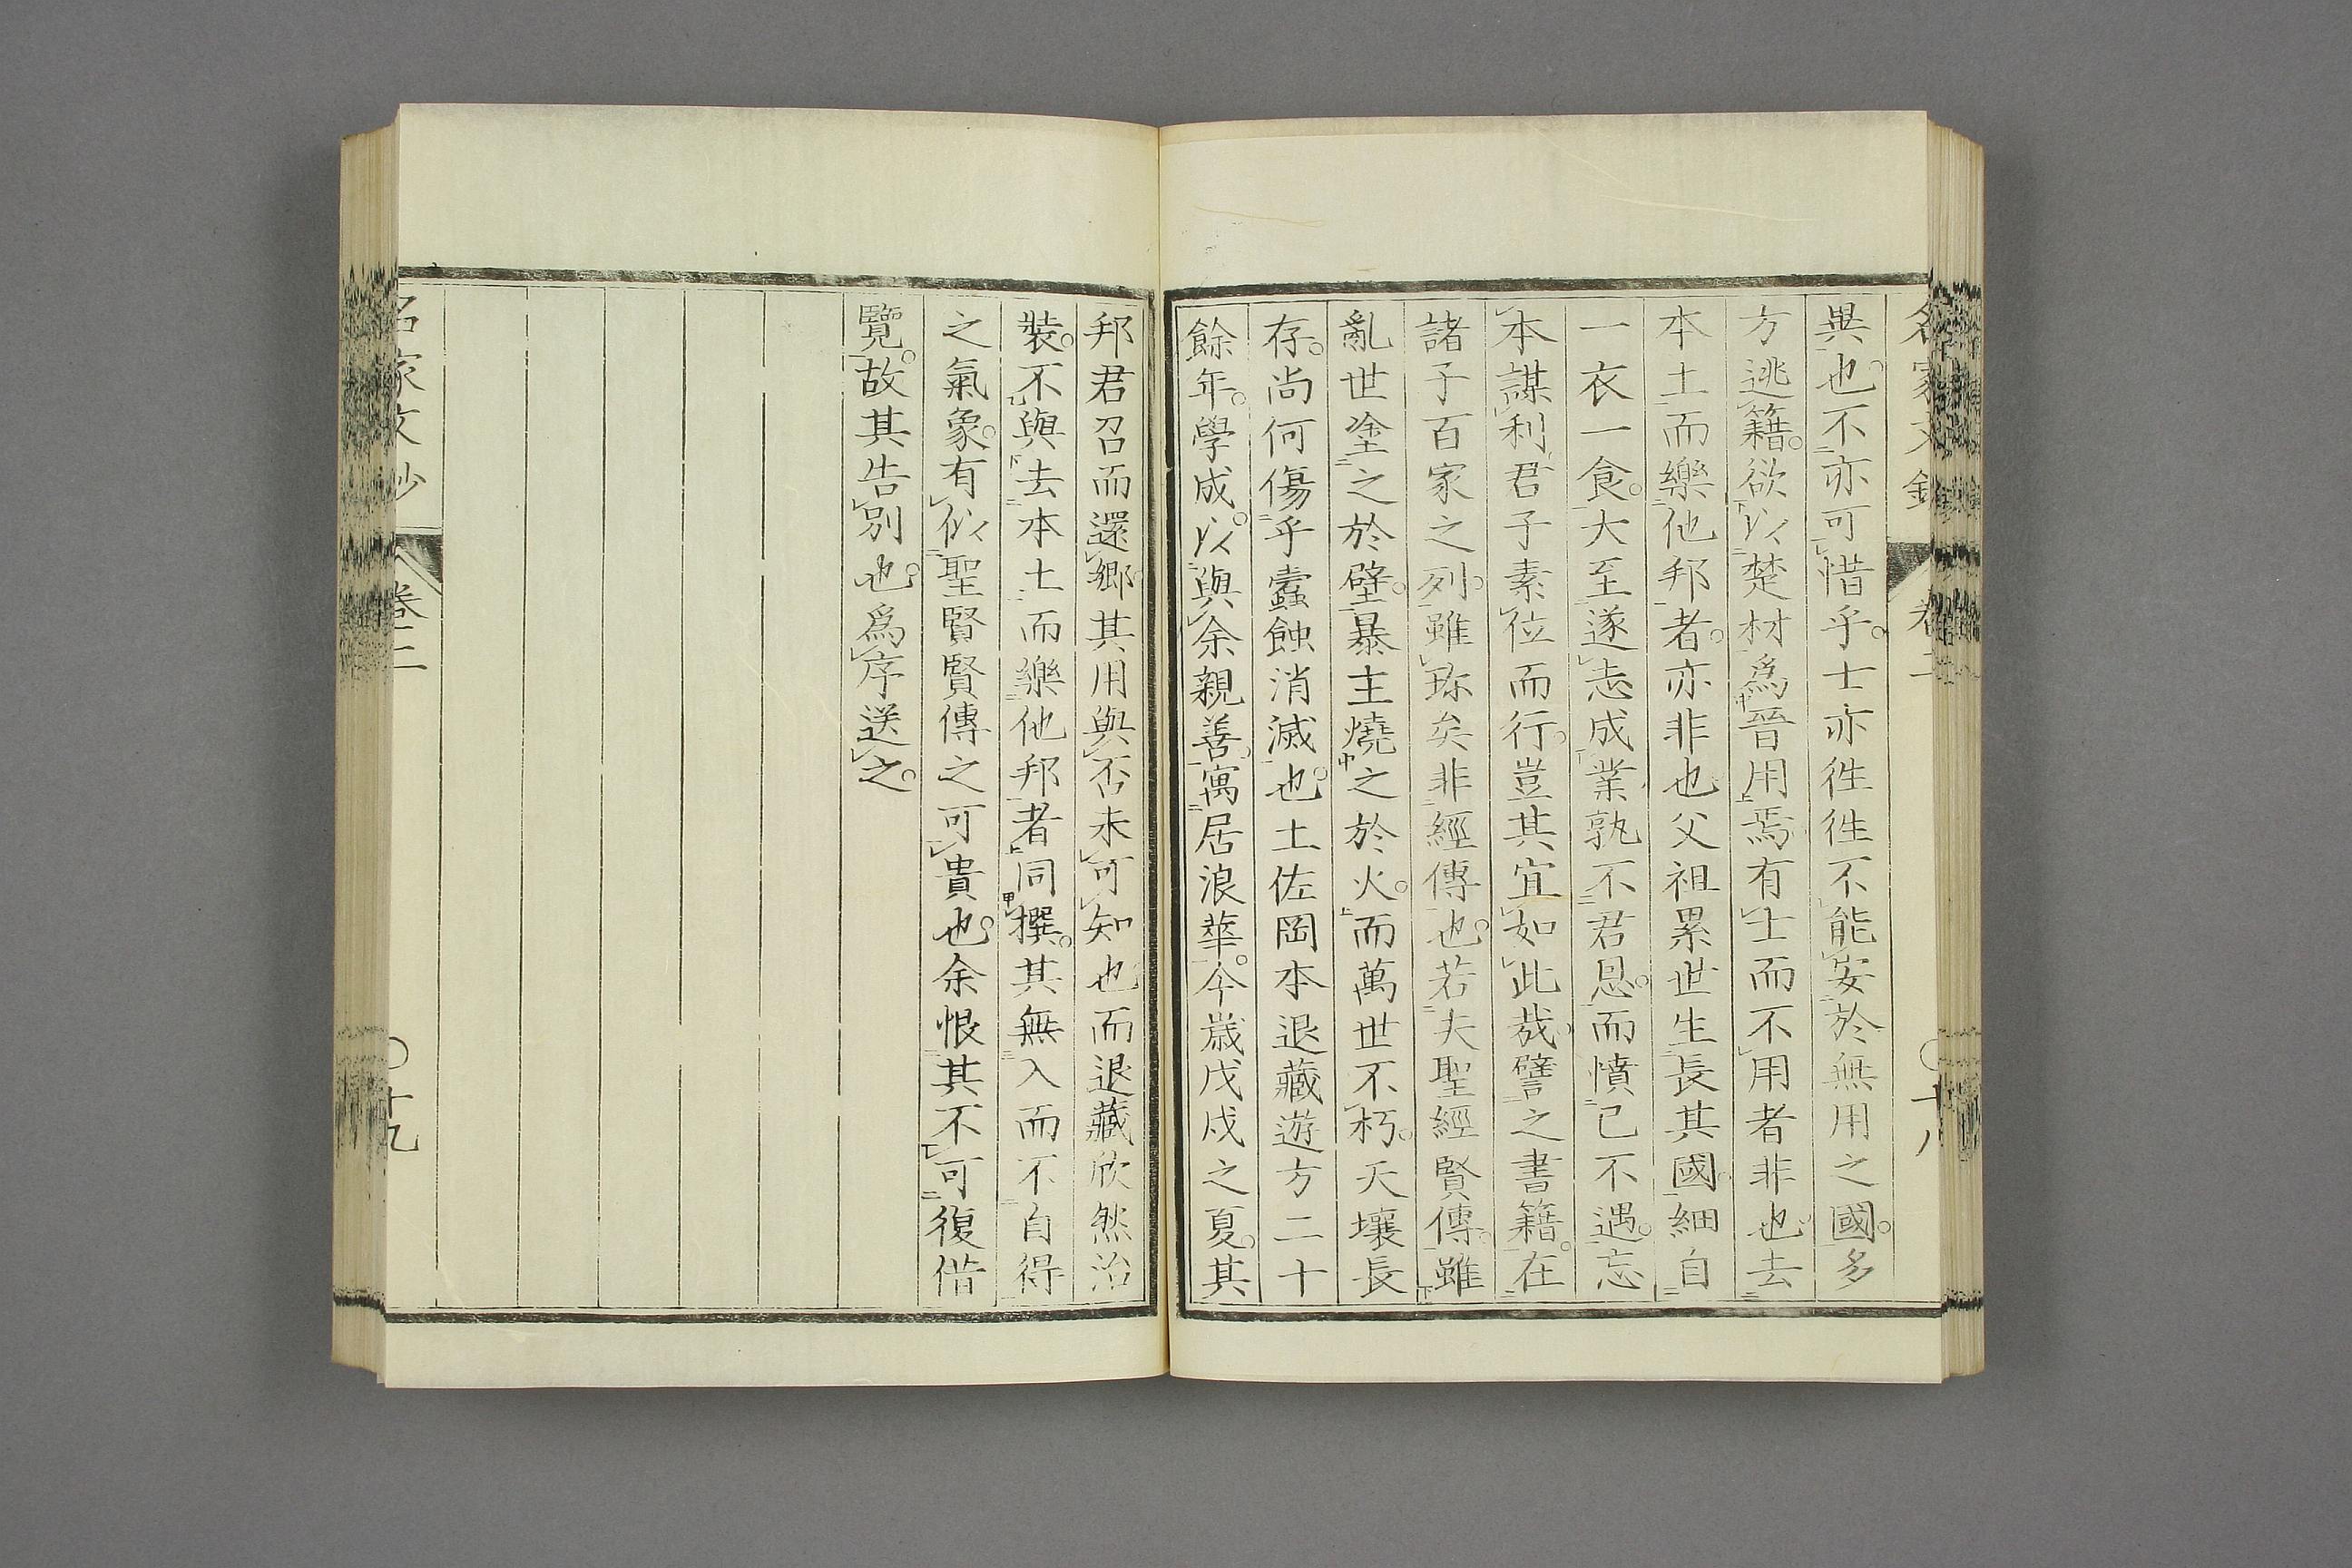 名家文鈔 卷二 〇十八
異也。不亦可惜乎。士亦徃徃不能安於無用之國。多
方逃籍。欲以楚材爲晉用焉有士而不用者非也去
本土而樂他邦者。亦非也父祖累世生長其國細自
一衣一食。大至遂志成業孰不君恩。而憤已不遇。忘
本謀利君子素位而行。豈其宜如此哉譬之書籍。在
諸子百家之列。雖珎矣非經傳也。若夫聖經賢傳。雖
亂世塗之於壁。暴主燒之於火。而萬世不朽。天壤長
存。尚何傷乎蠹蝕消滅也。土佐岡本退藏遊方二十
餘年。學成。以與余親善。寓居浪華。今歲戊戌之夏。其
邦君召而還鄉。其用與否未可知也而退藏欣然治
裝。不與去本土而樂他邦者同撰。其無入而不自得
之氣象。有似聖賢賢傳之可貴也。余恨其不可復借
覽。故其告別也。爲序送之。
名家文鈔 卷二 〇十九